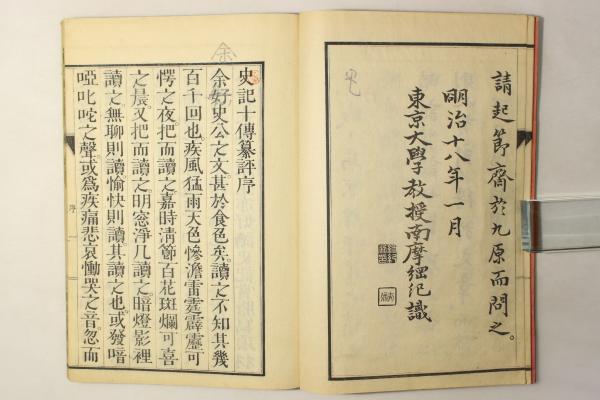 請起節齋於九原而問之。
明治十八年一月
東京大學教授南摩綱紀識
史記十傳纂評序
余好史公之文甚於食色矣。讀之不知其幾
百千回也。疾風猛雨天色慘澹雷霆霹靂可
愕之夜把而讀之嘉時淸節百花斑爛可喜
之晨又把而讀之明窓淨几讀之暗燈影裡
讀之無聊則讀愉快則讀其讀之也。或發喑
啞叱咤之聲或爲疾痛悲哀慟哭之音忽而
序